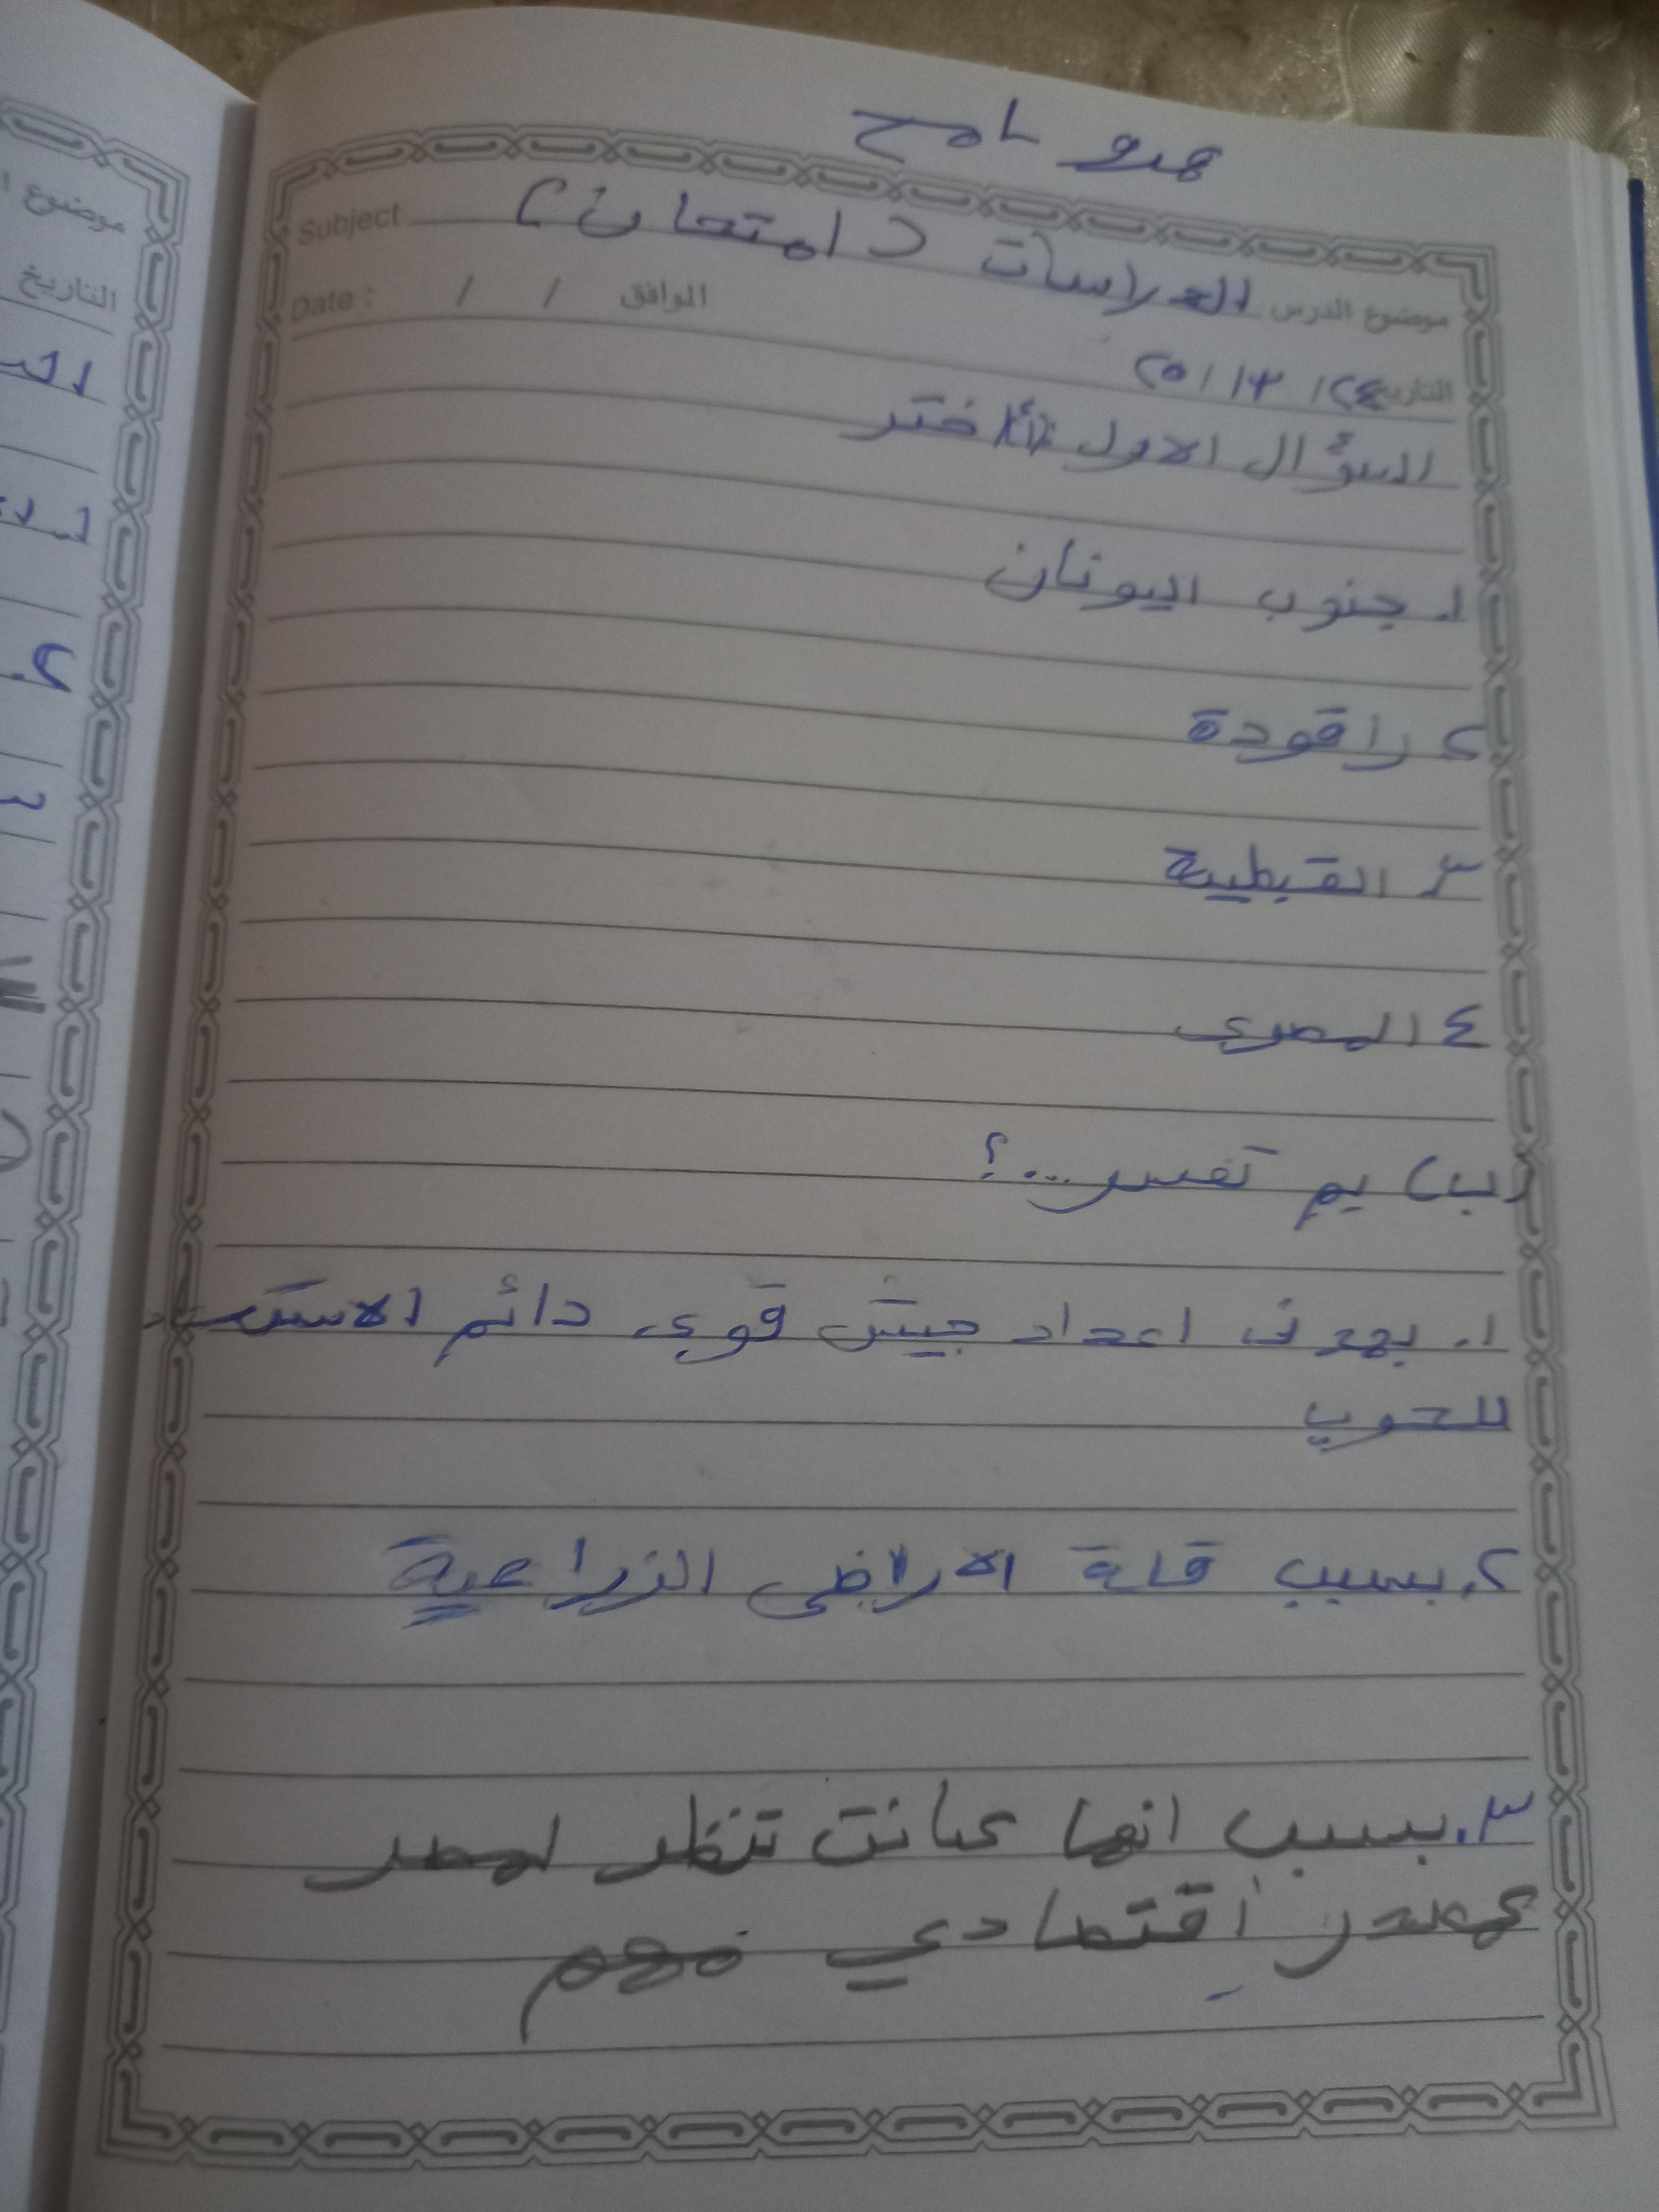 سامح
Subject
الدراسات (امتحان)
موضوع الدرس
Date : / / الموافق
التاريخ ٢٤/ ١٢/ ٢٥
السؤال الاول (أ) اختر
١. جنوب اليونان
٢ راقودة
٣ القبطية
٤ المصرى
(ب) بم تفسر...؟
١. بهدف اعداد جيش قوى دائم الاستعداد
للحرب
٢. بسبب قلة الاراضى الزراعية
٣. بسبب انها كانت تنظر لمصر
كمصدر اقتصادي مهم
موضوع
التاريخ